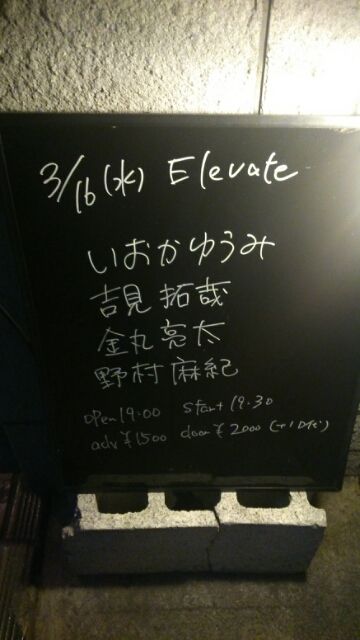 3/16(水) Elevate
いおかゆうみ
吉見 拓哉
金丸 亮太
野村 麻紀
open 19:00 start 19:30
adv ¥1500 door ¥2000 (+1D代)